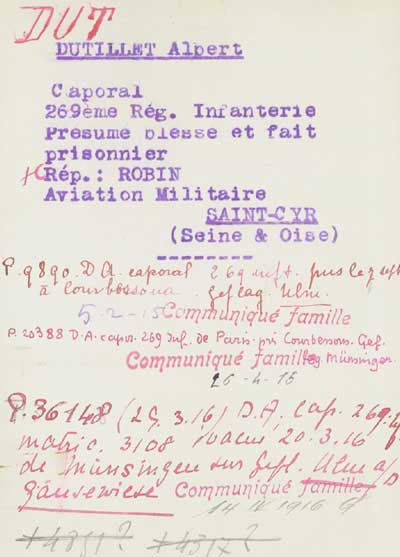 DUT
DUTILLET Albert
Caporal
269ème Rég. Infanterie
Presume blesse et fait
prisonnier
Rép.: ROBIN
Aviation Militaire
SAINT-CYR
(Seine & Oise)
P. 9890. D.A. caporal 269 inft. pris le 7
à Courbessoua. Geflag. Ulm.
5-2-15 Communiqué famille
P. 20388 D.A. capor. 269 Inf. de Paris. pri Courbessons. Gef.
Communiqué famille Münsingen.
26-4-15
P. 36148 (25.3.16) D.A. cap. 269.
matric. 3108 20.3.16
de Münsingen sur Gefl. Ulm a/D
Gänsewiese Communiqué famille
14 IV 1916